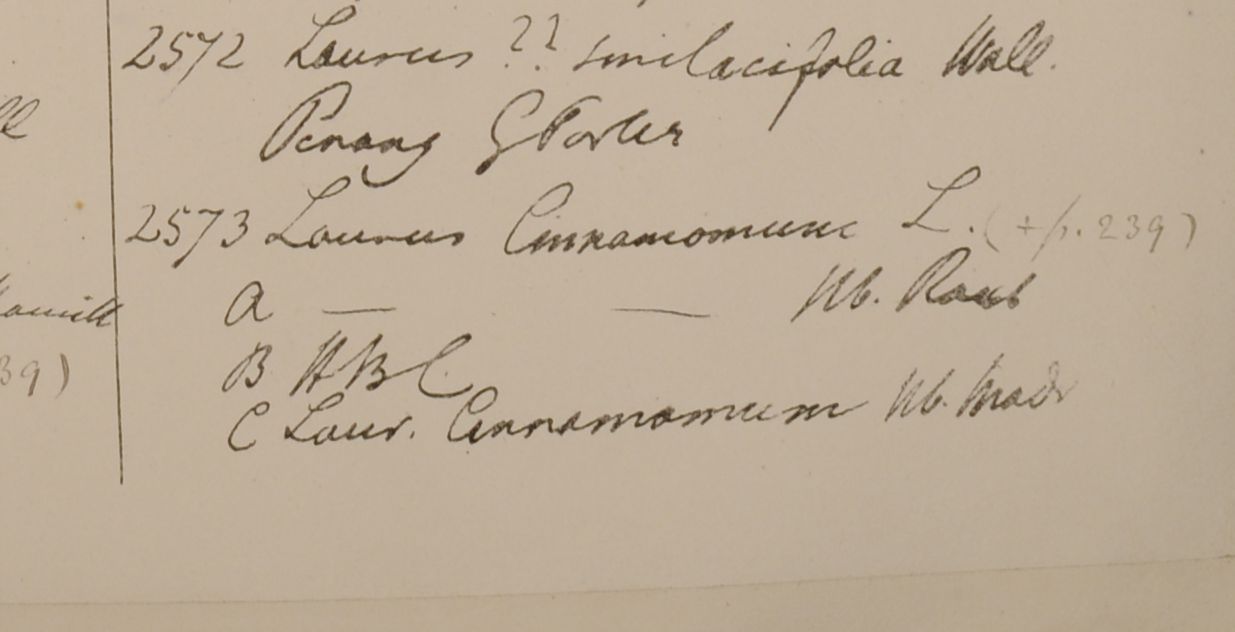 2572 Laurus ?? smilacifolia Wall.
Penang G Porter
2573 Laurus Cinnamomum L. (+/p. 239)
a — — Hb. Roxb
B HBC
C Laur. Cinnamomum Hb. Madr
39)